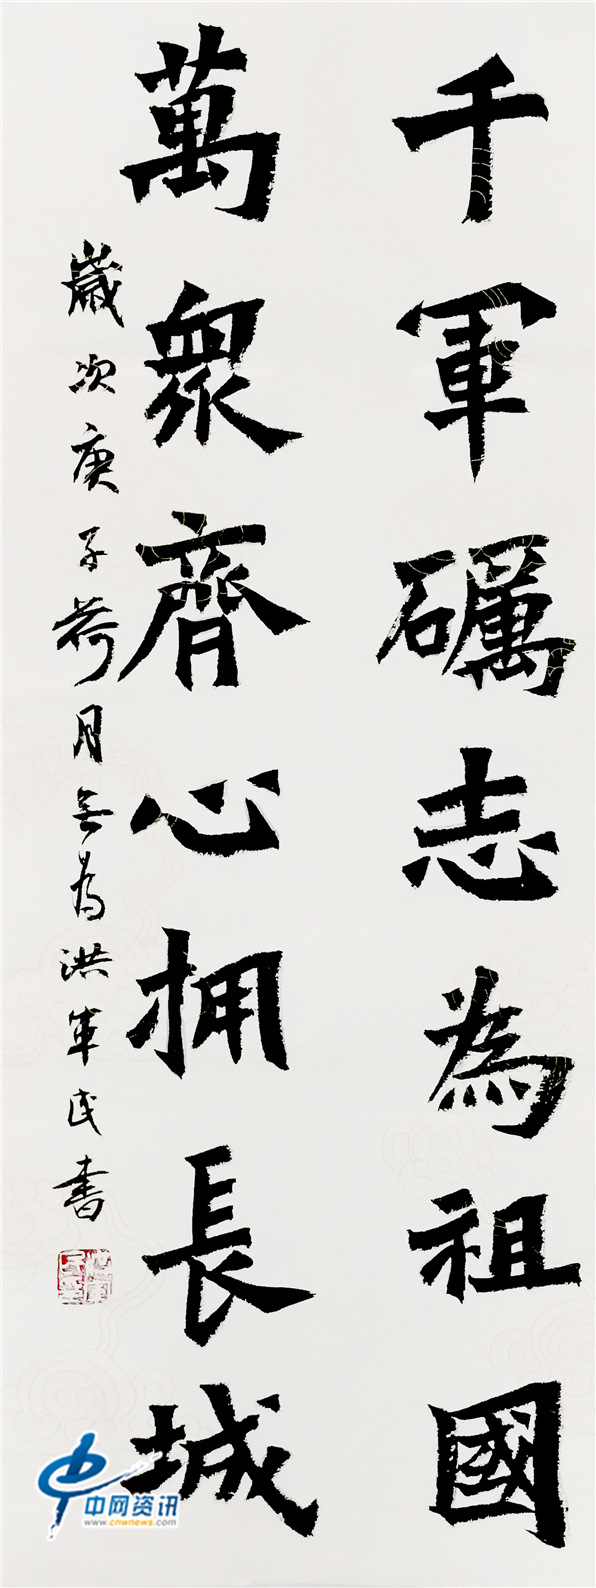 千軍礪志為祖國
萬眾齊心拥長城
歲次庚子荷月無為洪軍民書
中网资讯
www.cnwnews.com